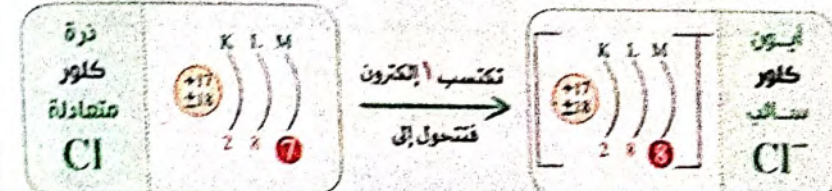 ذرة
كلور
متعادلة
Cl
K L M
+17
±18
2 8 7
تكتسب ١ إلكترون
فتتحول إلى
K L M
+17
±18
2 8 8
أيـون
كلور
سـالب
Cl⁻